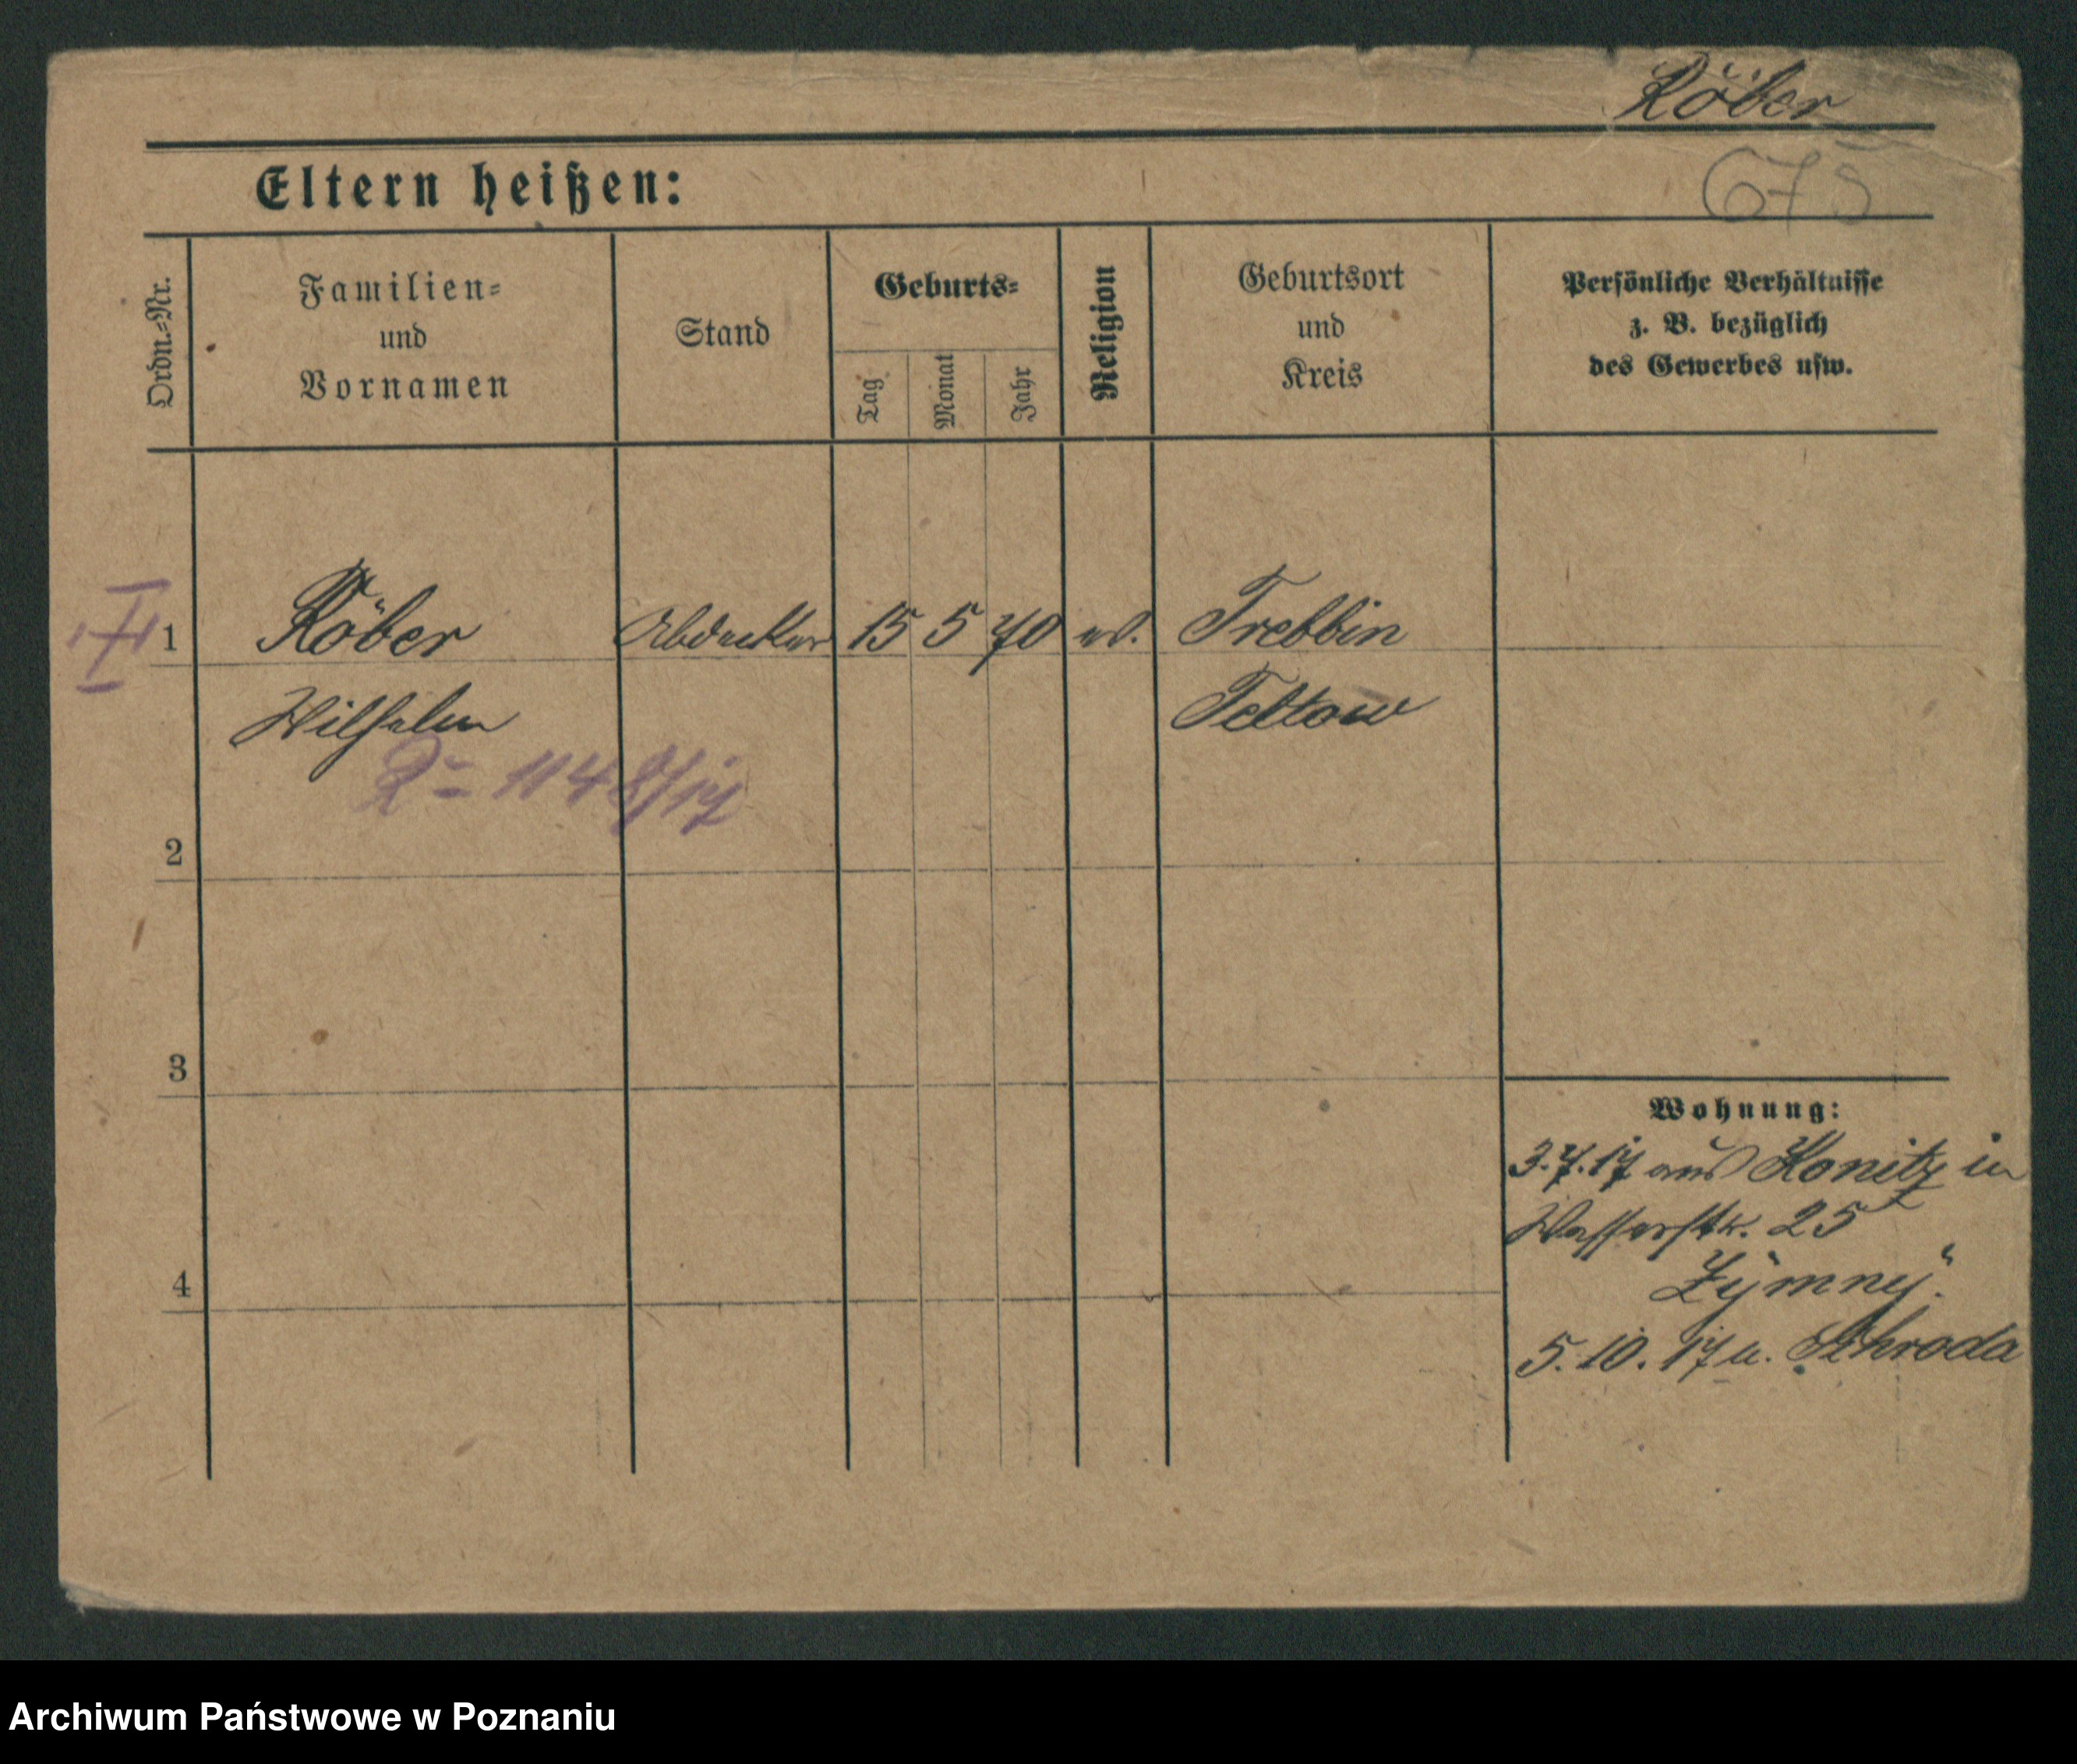 Röber
Eltern heißen:
675
Ordn.=Nr.
Familien=
und
Vornamen
Stand
Geburts=
Tag
Monat
Jahr
Religion
Geburtsort
und
Kreis
Persönliche Verhältnisse
z. B. bezüglich
des Gewerbes usw.
1
Röber
Abdecker
15
5
70
Trebbin
Wilhelm
Teltow
1148/17
2
3
4
Wohnung:
3.7.17 aus Konitz in
Wasserstr. 25
Zymny.
5.10.17 n. Schroda
Archiwum Państwowe w Poznaniu